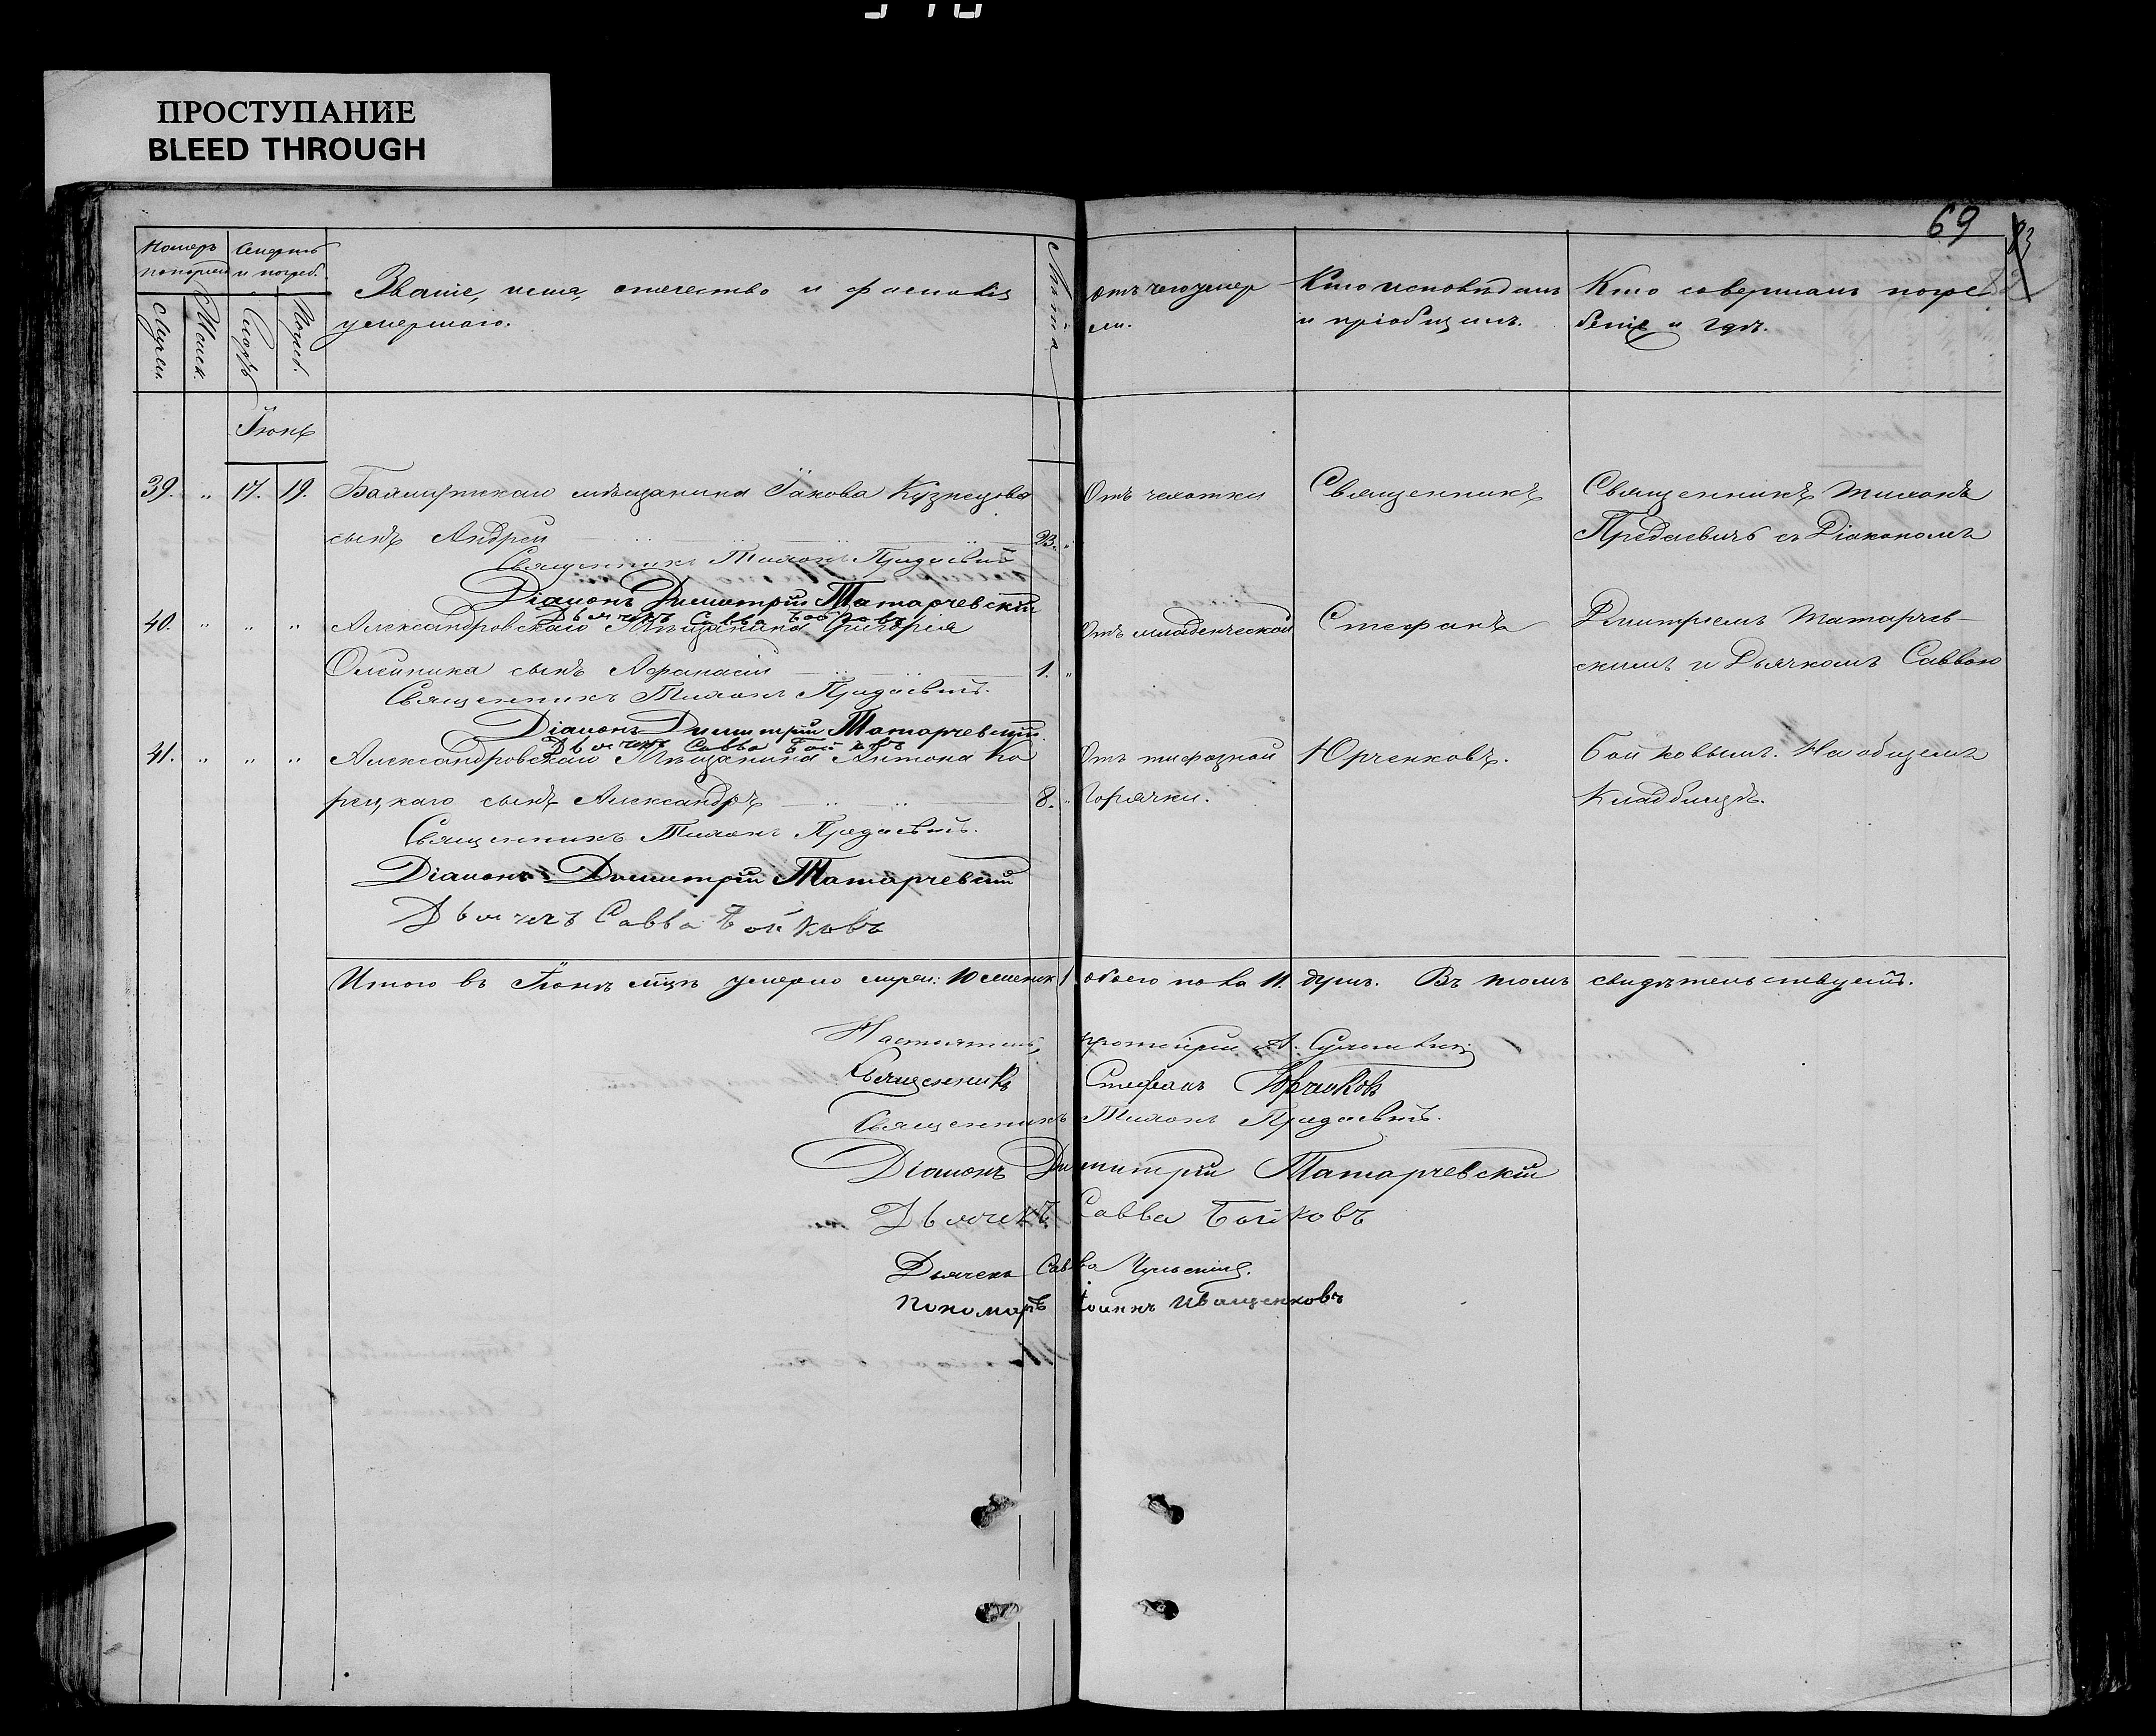 ПРОСТУПАНИЕ
BLEED THROUGH
69
Номеръ Смерть
и погреб.
Званіе, имя, отечество и фамилія
умершаго.
Лѣта
отъ чего умер
ли.
Кто исповѣдалъ
и пріобщилъ.
Кто совершалъ погре
беніе и гдѣ.
Мужеск.
Женск.
Смерть
Погреб.
Іюнь
39. " 17. 19. мѣщанина Іакова Кузнецова
сынъ Андрей 23. "
Отъ чахотки
Священникъ
Священникъ Тихонъ
Придаевичъ съ Діакономъ
Священникъ Тихонъ Придаевичъ
Діаконъ Димитрій Татарчевскій
Дьячекъ Савва Бойковъ
40. " " " Александровскаго Мѣщанина Григорія
Олейника сынъ Афанасій 1. "
Отъ младенческой
Стефанъ
Димитріемъ Татарчев-
скимъ и Дьячкомъ Саввою
Священникъ Тихонъ Придаевичъ.
Діаконъ Димитрій Татарчевскій.
Дьячекъ Савва Бойковъ
41. " " " Александровскаго Мѣщанина Антона Ко
рецкаго сынъ Александръ 8. "
Отъ тифозной
Горячки.
Юрченковъ.
Бойковымъ. На общемъ
Кладбищѣ.
Священникъ Тихонъ Придаевичъ.
Діаконъ Димитрій Татарчевскій
Дьячекъ Савва Бойковъ
Итого въ Іюнѣ мцѣ умерло муж: 10 женск 1 обоего пола 11. душъ. Въ томъ свидѣтельствуемъ.
Настоятель, протоіерей А.
Священникъ Стефанъ Юрченковъ
Священникъ Тихонъ Придаевичъ.
Діаконъ Димитрій Татарчевскій
Дьячекъ Савва Бойковъ
Дьячекъ Савва
Пономарь Іоаннъ Иващенковъ